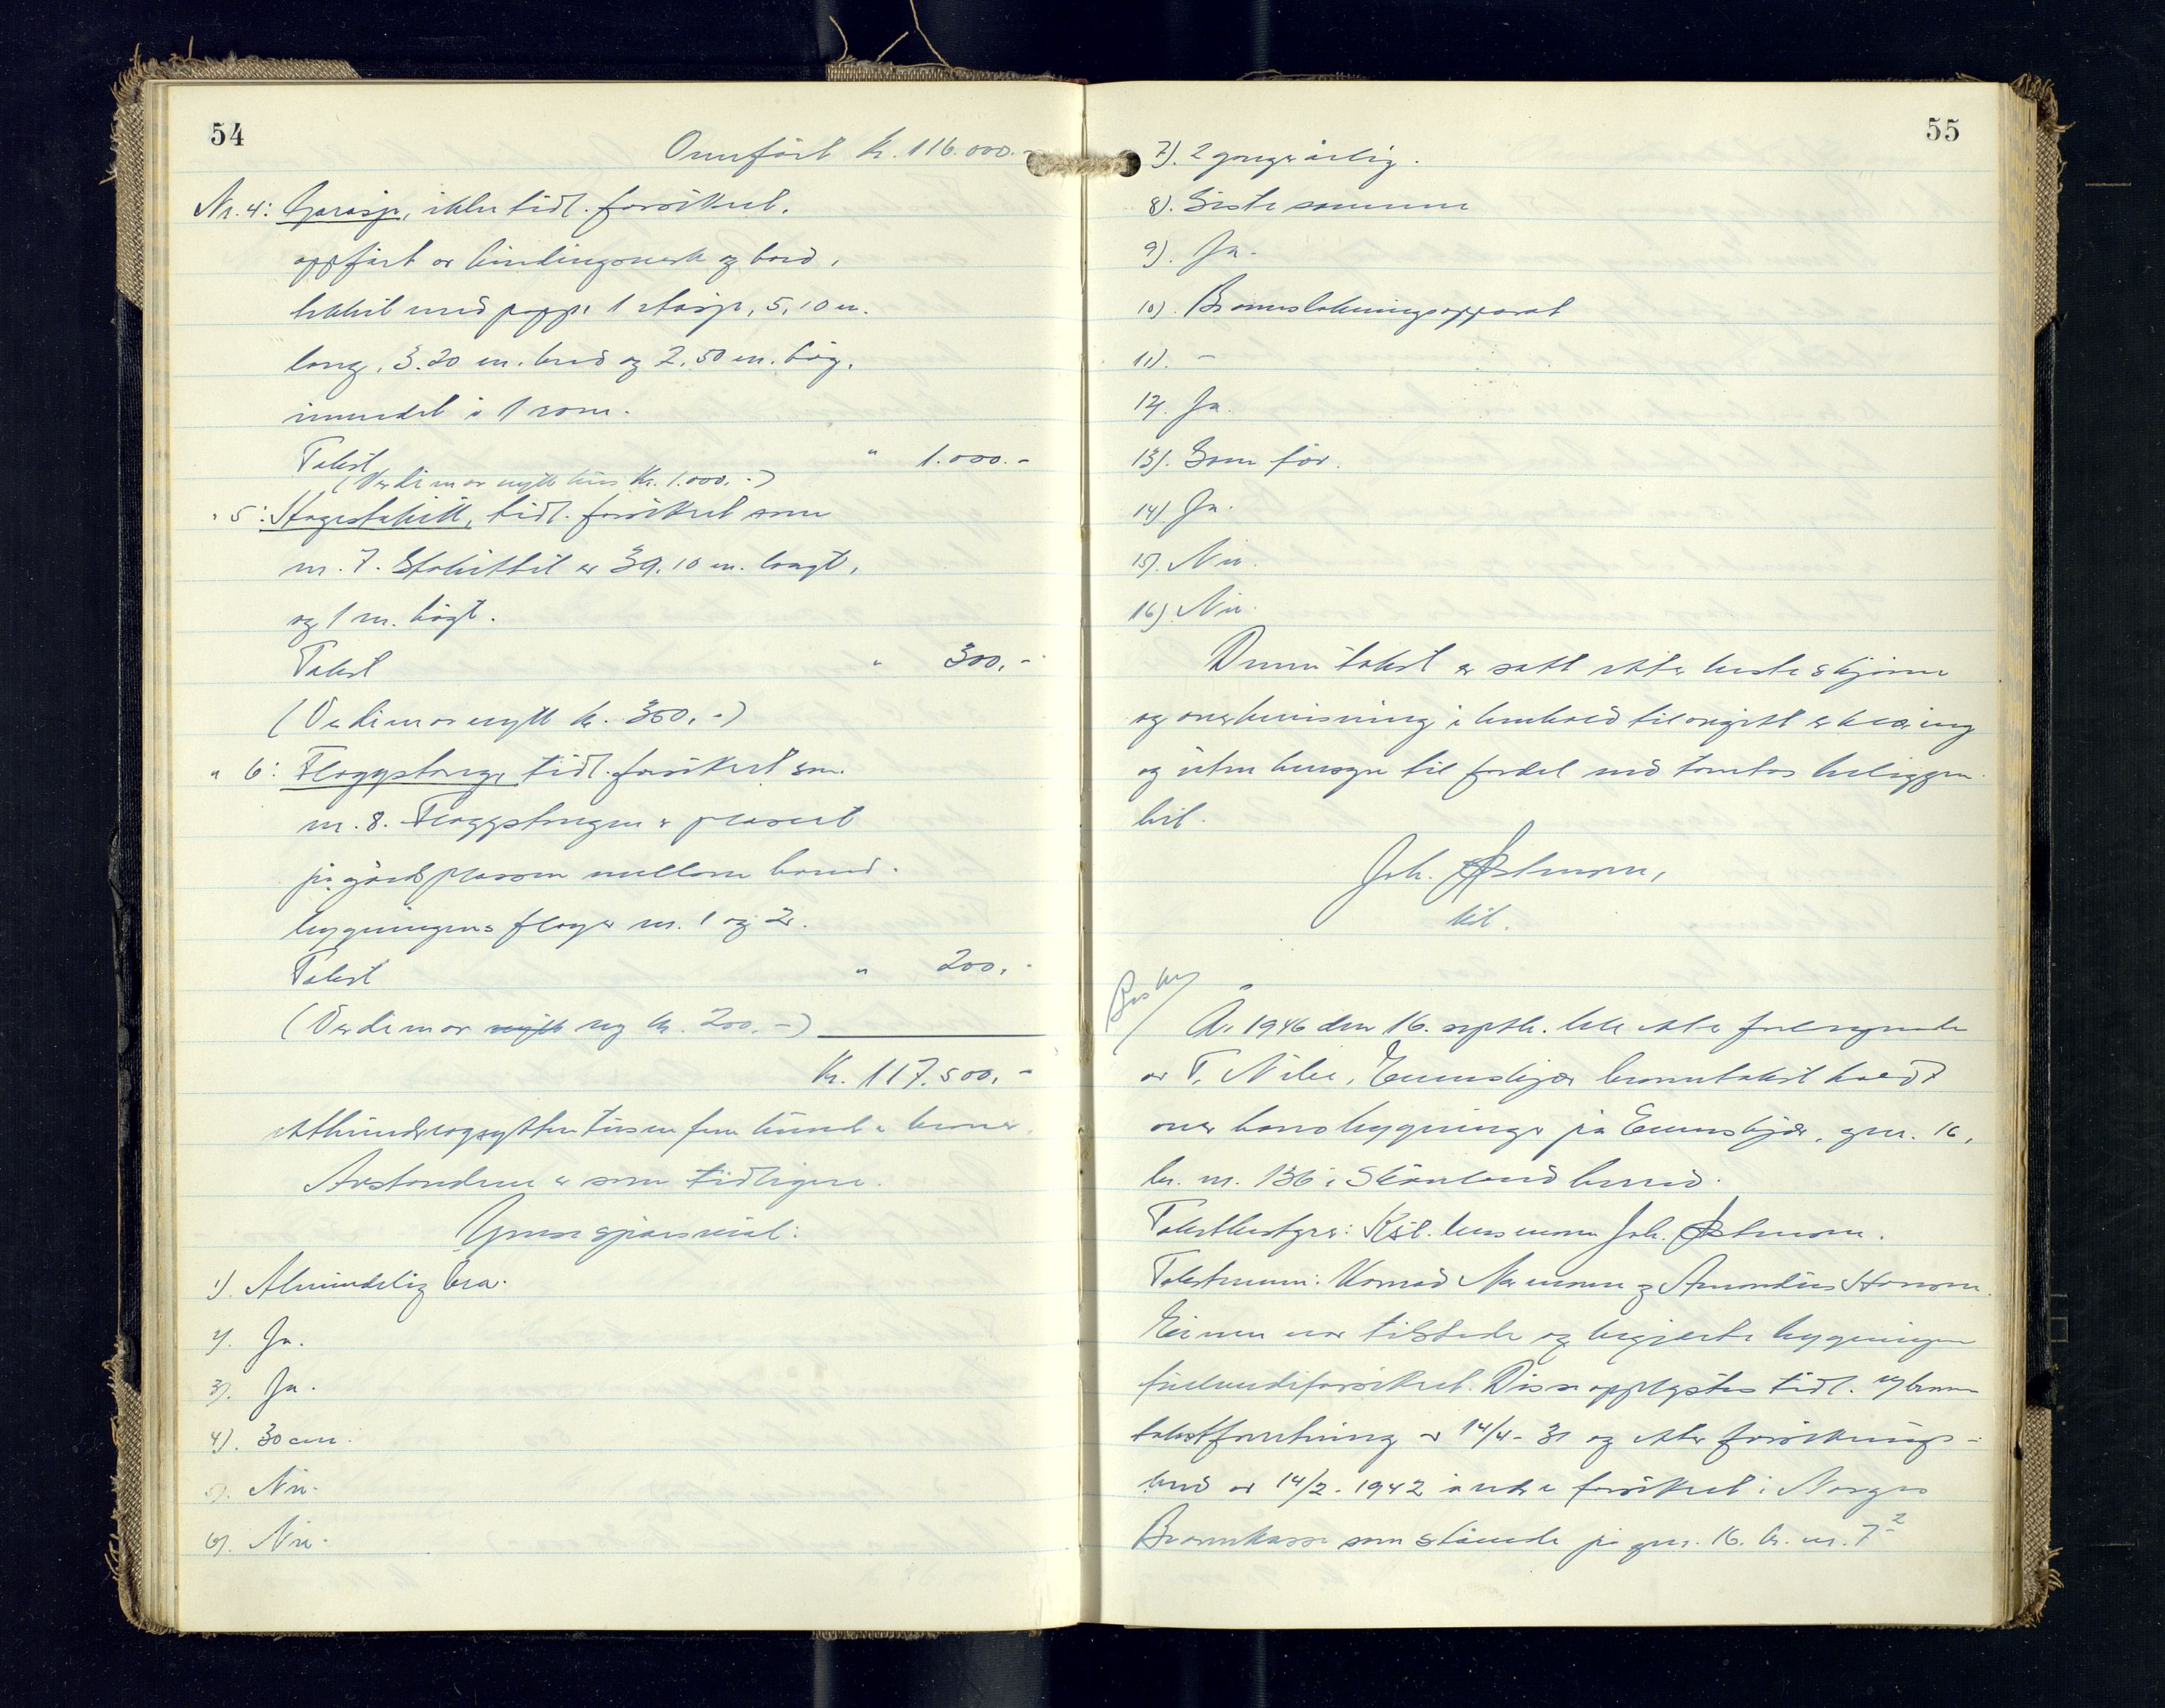 54
Overført kr. 116.000.-
Nr. 4: Garasje, ikke tidl. forsikret,
oppført av bindingsverk og bord,
tekket med papp, 1 etasje, 5,10 m.
lang, 3.20 m. bred og 2,50 m. høg,
innredet i 1 rom.
Takst " 1.000.-
(Verdi m av nytt hus kr. 1.000.-)
" 5: Hagestakitt, tidl. forsikret som
nr. 7. Stakittet er 39.10 m. langt,
og 1 m. høgt.
Takst " 300,-
(Verdi m av nytt kr. 300,-)
" 6: Flaggstang, tidl. forsikret som
nr. 8. Flaggstangen er plasert
på gårdsplassen mellom hoved-
bygningens fløyer nr. 1 og 2.
Takst " 200,-
(Verdi m av nytt ny kr. 200.-)
Kr. 117.500,-
etthundreogsyttentusenfemhundre kroner.
Avstandene er som tidligere.
Ymse spørsmål:
1). Almindelig bra.
2). Ja.
3). Ja.
4). 30 cm.
5). Nei.
6). Nei.
55
7). 2 ganger årlig.
8). Siste sommer
9). Ja.
10). Brannslokningsapparat
11). -
12). Ja.
13). Som før.
14). Ja.
15). Nei.
16). Nei.
Denne takst er satt etter beste skjønn
og overbevisning i henhold til avgitt erklæring
og uten hensyn til fordel ved tomtas beliggen-
het.
Joh.
År 1946 den 16. septbr. ble etter forlangende
av T. Nilsen, Evenskjær branntakst holdt
over hans bygninger på Evenskjær, gnr. 16,
br. nr. 136 i Skånland herred.
Takstbestyrer: Kst. lensmann Joh.
Takstmenn: Konrad og Amandus Hansen.
Eieren var tilstede og begjærte bygningene
fullverdiforsikret. Disse opplystes tidl. ved brann-
takstforretning av 14/4-31 og etter forsikrings-
bud av 14/2-1942 å være forsikret i Norges
Brannkasse som stående på gnr. 16. br. nr. 7